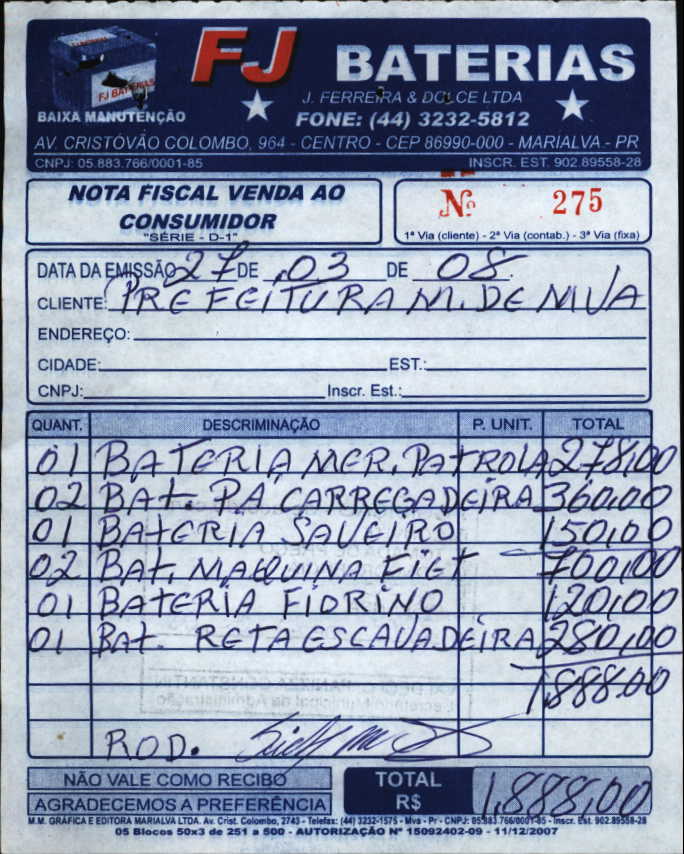 FJ BATERIAS
FJ BATERIAS
BAIXA MANUTENÇÃO
J. FERREIRA & DOLCE LTDA
FONE: (44) 3232-5812
AV. CRISTÓVÃO COLOMBO, 964 - CENTRO - CEP 86990-000 - MARIALVA - PR
CNPJ: 05.883.766/0001-85 INSCR. EST. 902.89558-28
NOTA FISCAL VENDA AO
CONSUMIDOR
"SÉRIE - D-1"
Nº 275
1ª Via (cliente) - 2ª Via (contab.) - 3ª Via (fixa)
DATA DA EMISSÃO 27 DE 03 DE 08.
CLIENTE: PREFEITURA M. DE MVA
ENDEREÇO:
CIDADE: EST.:
CNPJ: Inscr. Est.:
QUANT. DESCRIMINAÇÃO P. UNIT. TOTAL
01 BATERIA MER. PATROLA 278,00
02 BAT PA CARREGADEIRA 360,00
01 BATERIA SAVEIRO 150,00
02 BAT. MAQUINA FIET 700,00
01 BATERIA FIORINO 120,00
01 BAT. RETA ESCAVADEIRA 280,00
1.888.00
ROD.
NÃO VALE COMO RECIBO
AGRADECEMOS A PREFERÊNCIA
TOTAL
R$ 1.888,00
M.M. GRÁFICA E EDITORA MARIALVA LTDA. Av. Crist. Colombo, 2743 - Telefax: (44) 3232-1575 - Mva - Pr - CNPJ: 05.883.766/0001-85 - Inscr. Est. 902.89558-28
05 Blocos 50x3 de 251 a 500 - AUTORIZAÇÃO Nº 15092402-09 - 11/12/2007